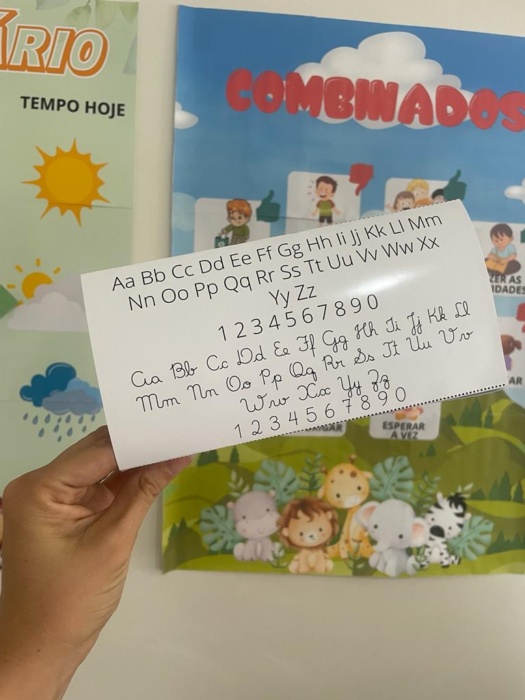 TEMPO HOJE
COMBINADOS
Aa Bb Cc Dd Ee Ff Gg Hh Ii Jj Kk Ll Mm
Nn Oo Pp Qq Rr Ss Tt Uu Vv Ww Xx
Yy Zz
1 2 3 4 5 6 7 8 9 0
Aa Bb Cc Dd Ee Ff Gg Hh Ii Jj Kk Ll
Mm Nn Oo Pp Qq Rr Ss Tt Uu Vv
Ww Xx Yy Zz
1 2 3 4 5 6 7 8 9 0
ESPERAR
A VEZ